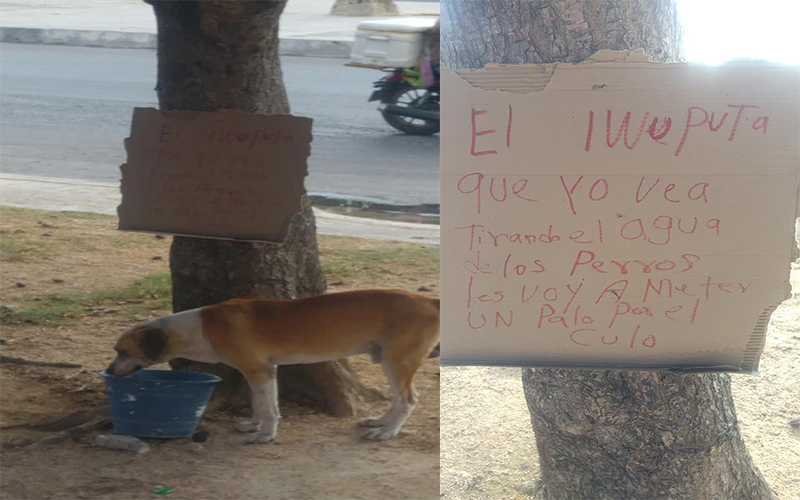 El IWUPUTA
que Yo vea
Tirando el Agua
de los Perros
les voy A Meter
UN Palo Por el
Culo